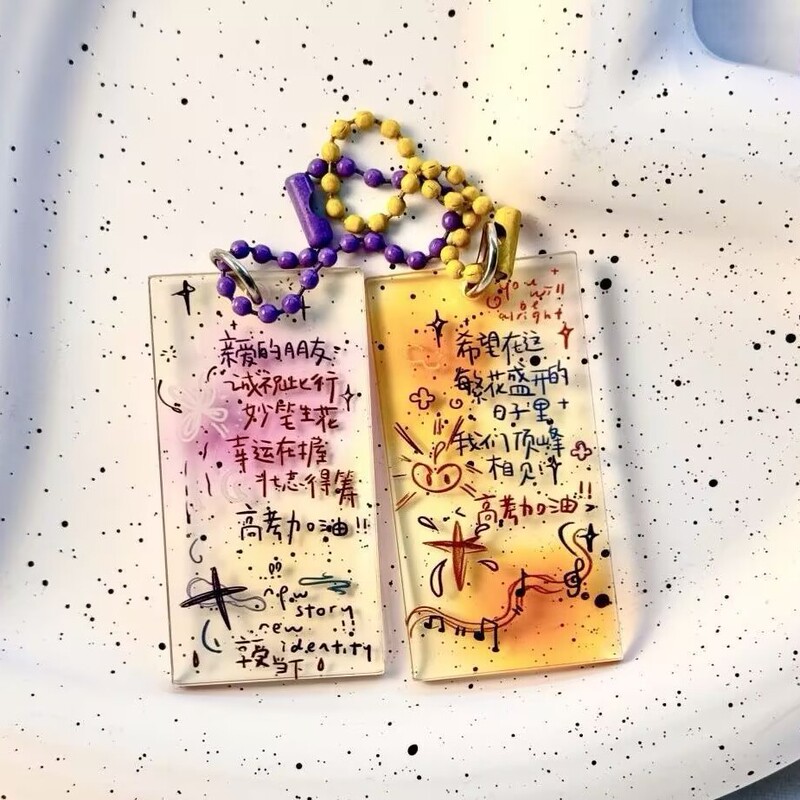 亲爱的朋友:
诚祝此行
妙笔生花
幸运在握
壮志得筹
高考加油!!
new
story
new !!
identity
享受
当下
You
will
be
alright
希望在这
繁花盛开的
日子里
我们顶峰
相见
高考加油!!